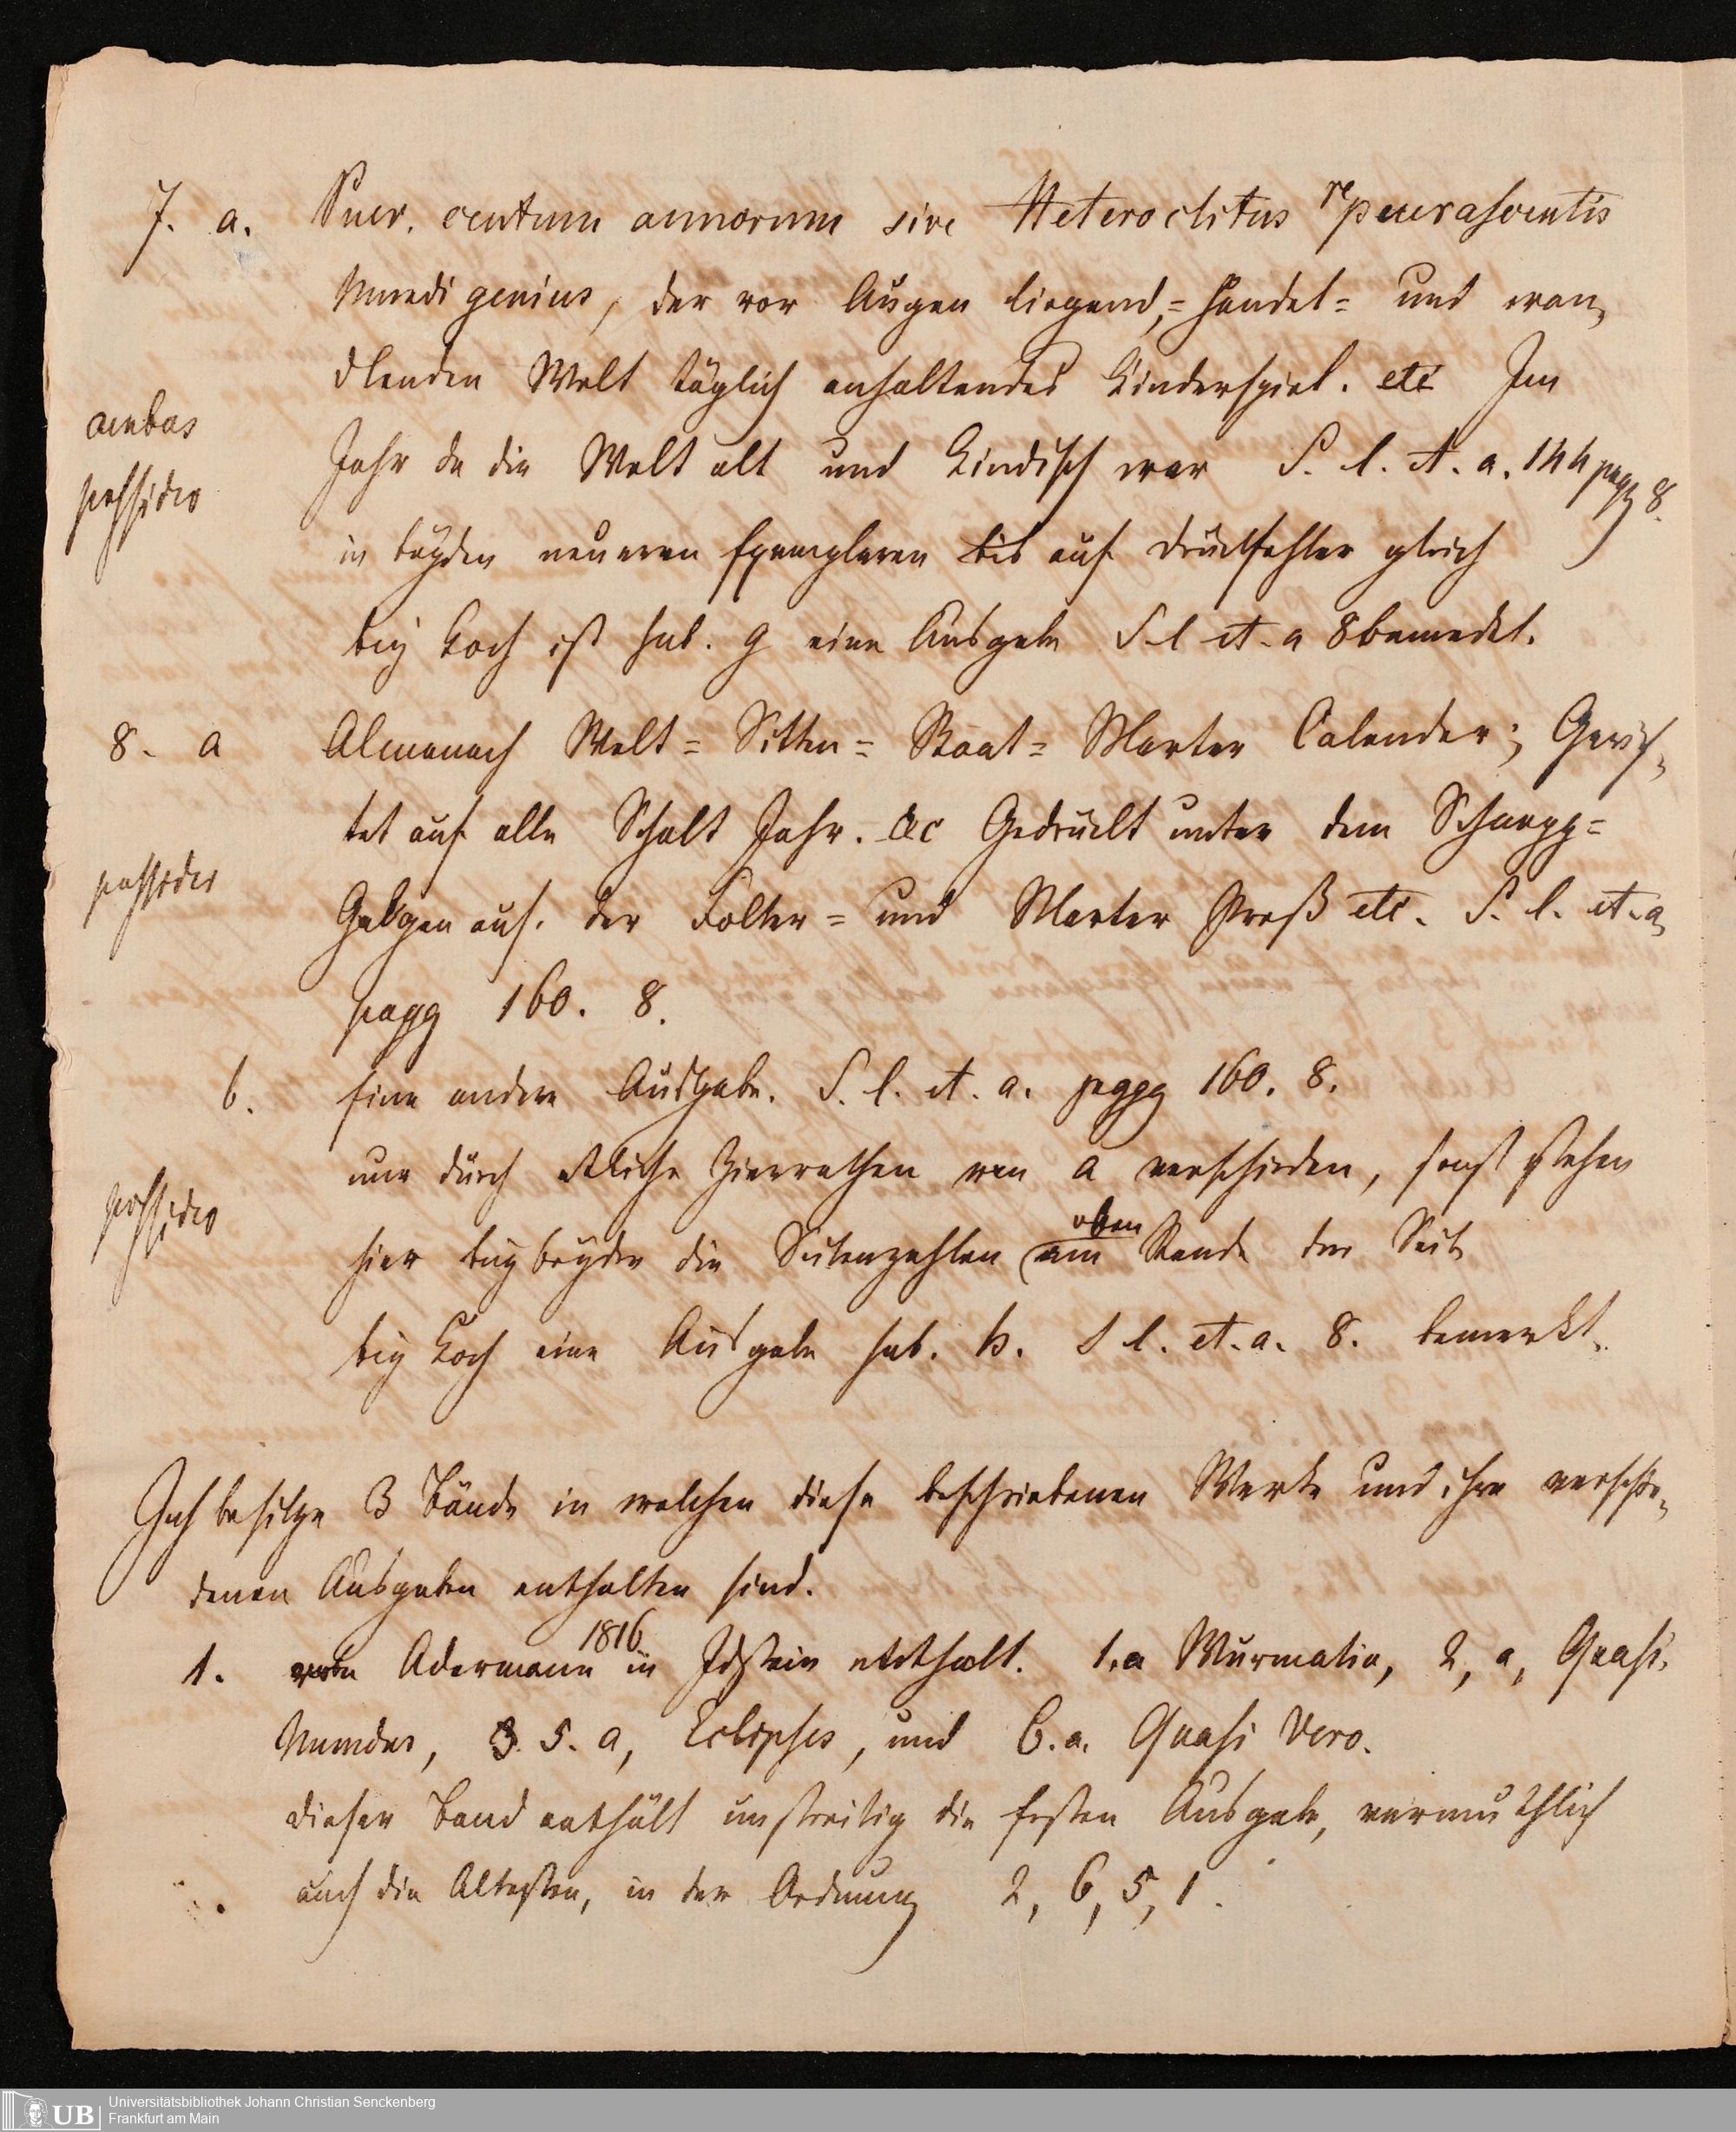 7. a. Puer. centum annorum sive Heteroclitus repuerascentis
Mundi genius, der vor Augen liegend,= handel= und wan,
dlenden Welt täglich anhaltendes Kinderspiel. etc Im
ambas
Jahr da die Welt alt und Kindisch war S. l. et. a. 144 pagg 8.
possideo
in beyden neueren Exemplaren bis auf Druckfehler gleich
bey Koch ist sub. g eine Ausgabe S l et. a 8 bemerkt.
8. a Almanach Welt= Sitten= Staat= Marter Calender; Gerich,
tet auf alle Schalt Jahr. &c Gedruckt unter dem Schnapp=
possideo
Galgen auf. der Folter= und Marter Preß etc. S. l. et. a,
pagg 160. 8.
b. Eine andere Ausgabe. S. l. et. a. pagg 160. 8.
nur durch etliche Zierrathen von a verschieden, sonst stehen
possideo
oben
hier bey beyden die Seitenzahlen (am Rande der Seite
bey Koch eine Ausgabe sub. h. S l. et. a. 8. bemerkt.
Ich besitze 3 Bände in welchen diese beschriebenen Werke und ihre verschie,
denen Ausgaben enthalten sind.
1816
1. von Adermann in Idstein enthält. 1. a Wurmatia, 2, a, Quasi.
Mundus, 3. 5. a, Eclipses, und 6. a. Quasi Vero.
dieser Band enthält unstreitig die Ersten Ausgabe, vermuthlich
auch die Altesten, in der Ordnung 2, 6, 5, 1.
UB Universitätsbibliothek Johann Christian Senckenberg
Frankfurt am Main